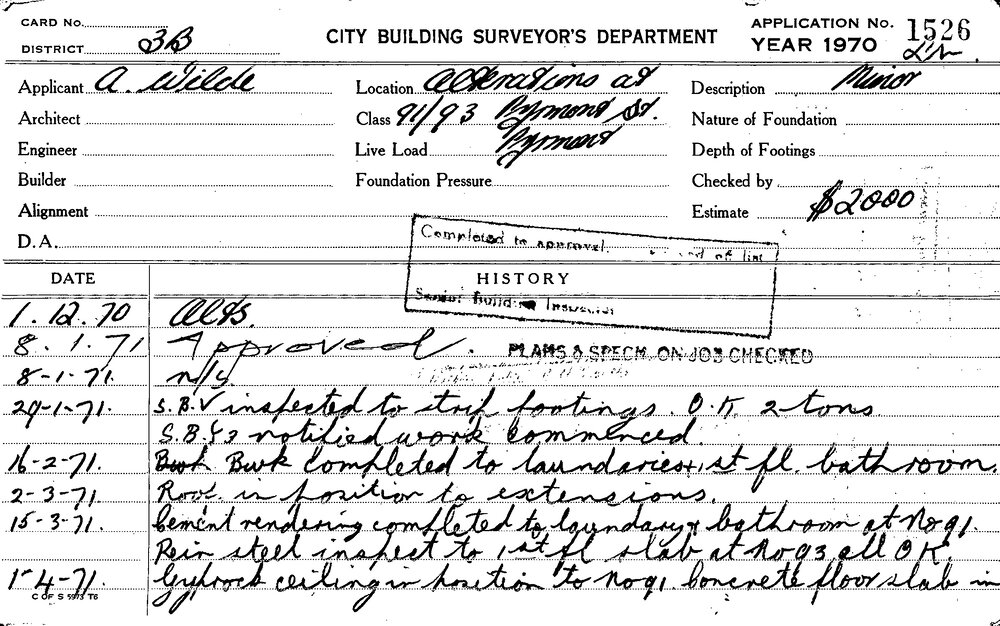 CARD No.
DISTRICT 3B
CITY BUILDING SURVEYOR'S DEPARTMENT
APPLICATION No. 1526
YEAR 1970
Applicant A. Wilde
Location Alterations at
Description Minor
Architect
Class 91/93 Pyrmont St.
Nature of Foundation
Engineer
Live Load Pyrmont
Depth of Footings
Builder
Foundation Pressure
Checked by
Alignment
Estimate $2000
D.A.
Completed to approval. end of list
Senior Building Inspector
DATE HISTORY
1.12.70 Alts.
8.1.71 Approved.
PLANS & SPECN. ON JOB CHECKED
8-1-71. n/s
29-1-71. S.B.V inspected to strip footings. O.K 2 tons
S.B.S notified work commenced.
16-2-71. Bwk completed to laundaries & 1st fl. bathroom.
2-3-71. Roof. in position to extensions.
15-3-71. Cement rendering completed to laundary & bathroom at No 91.
Rein steel inspect to 1st fl slab at No 93 all O.K.
1-4-71. Gyprock ceiling in position to No 91. Concrete floor slab in
C OF S 5973 T6